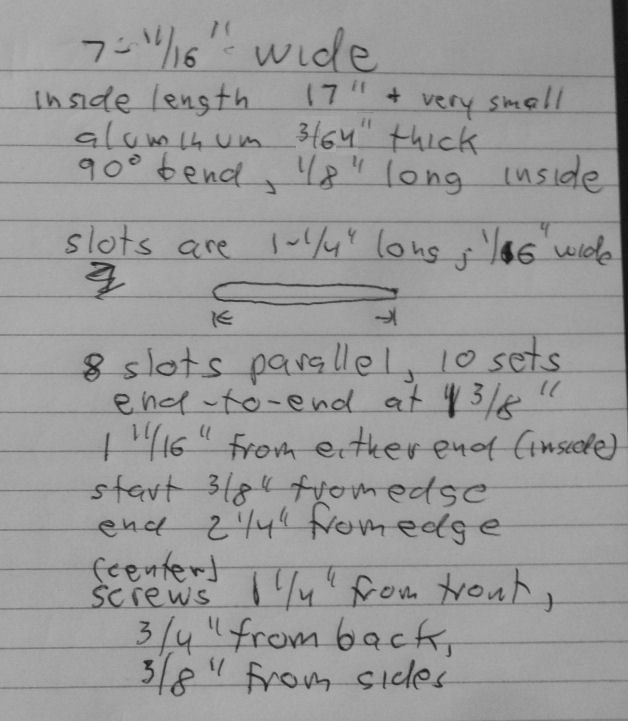 7-11/16" wide
inside length 17" + very small
aluminum 3/64" thick
90° bend, 1/8" long inside
slots are 1-1/4" long; 1/16" wide
8 slots parallel, 10 sets
end-to-end at 1 3/8"
1 11/16" from either end (inside)
start 3/8" from edge
end 2 1/4" from edge
(center)
screws 1 1/4" from front,
3/4" from back,
3/8" from sides